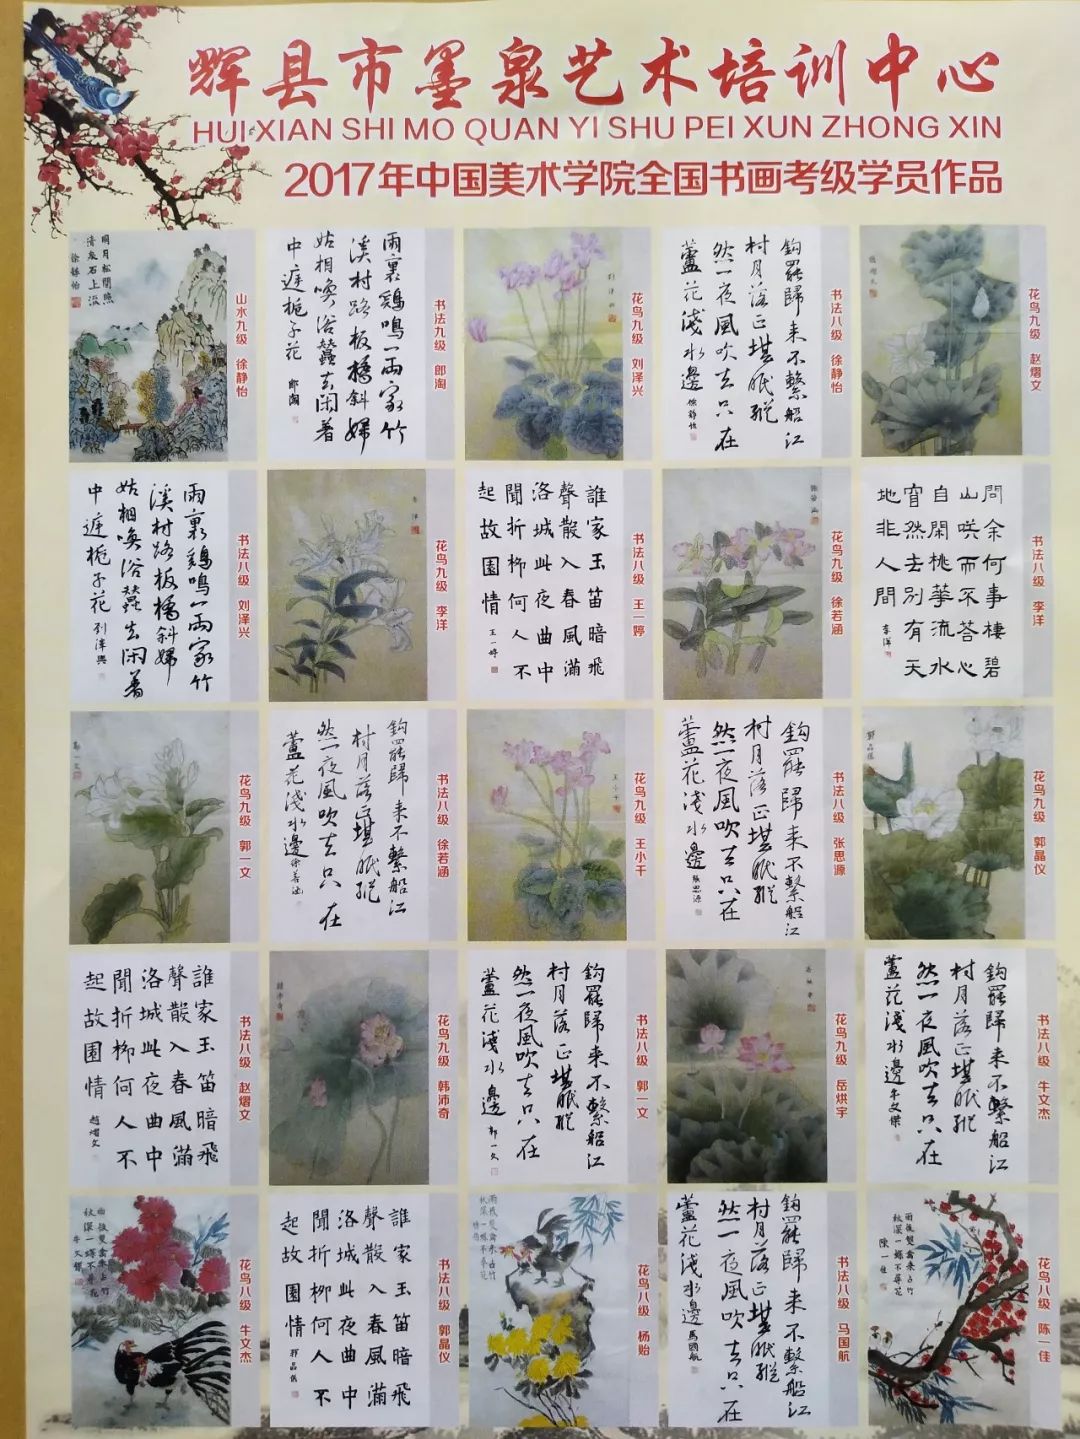 辉县市墨泉艺术培训中心
HUI XIAN SHI MO QUAN YI SHU PEI XUN ZHONG XIN
2017年中国美术学院全国书画考级学员作品
明月松間照
清泉石上流
徐静怡
山水九级 徐静怡
雨裏鷄鳴一兩家竹
溪村路板橋斜婦
姑相喚浴蠶去閑着
中庭栀子花
郎淘
书法九级 郎淘
花鸟九级 刘泽兴
鈎罷歸来不繫船江
村月落正堪眠縱
然一夜風吹去只在
蘆花淺水邊
徐静怡
书法八级 徐静怡
花鸟九级 赵熠文
雨裏鷄鳴一兩家竹
溪村路板橋斜婦
姑相喚浴蠶去閑着
中庭栀子花
刘泽興
书法八级 刘泽兴
李洋
花鸟九级 李洋
誰家玉笛暗飛
聲散入春風滿
洛城此夜曲中
聞折柳何人不
起故園情
王一婷
书法八级 王一婷
徐若涵
花鸟九级 徐若涵
問余何事棲碧
山咲而不荅心
自閑桃華流水
窅然去别有天
地非人間
李洋
书法八级 李洋
郭一文
花鸟九级 郭一文
鈎罷歸来不繫船江
村月落正堪眠縱
然一夜風吹去只在
蘆花淺水邊
徐若涵
书法八级 徐若涵
王小千
花鸟九级 王小千
鈎罷歸来不繫船江
村月落正堪眠縱
然一夜風吹去只在
蘆花淺水邊
張思源
书法八级 张思源
郭晶仪
花鸟九级 郭晶仪
誰家玉笛暗飛
聲散入春風滿
洛城此夜曲中
聞折柳何人不
起故園情
趙熠文
书法八级 赵熠文
韓沛奇
花鸟九级 韩沛奇
鈎罷歸来不繫船江
村月落正堪眠縱
然一夜風吹去只在
蘆花淺水邊
郭一文
书法八级 郭一文
花鸟九级 岳烘宇
鈎罷歸来不繫船江
村月落正堪眠縱
然一夜風吹去只在
蘆花淺水邊
牛文傑
书法八级 牛文杰
雨後雙禽来占竹
秋深一蝶不尋花
牛文傑
花鸟八级 牛文杰
誰家玉笛暗飛
聲散入春風滿
洛城此夜曲中
聞折柳何人不
起故園情
郭晶儀
书法八级 郭晶仪
雨後雙禽来占竹
秋深一蝶不尋花
花鸟八级 杨贻
鈎罷歸来不繫船江
村月落正堪眠縱
然一夜風吹去只在
蘆花淺水邊
馬國航
书法八级 马国航
雨後雙禽来占竹
秋深一蝶不尋花
陳一佳
花鸟八级 陈一佳